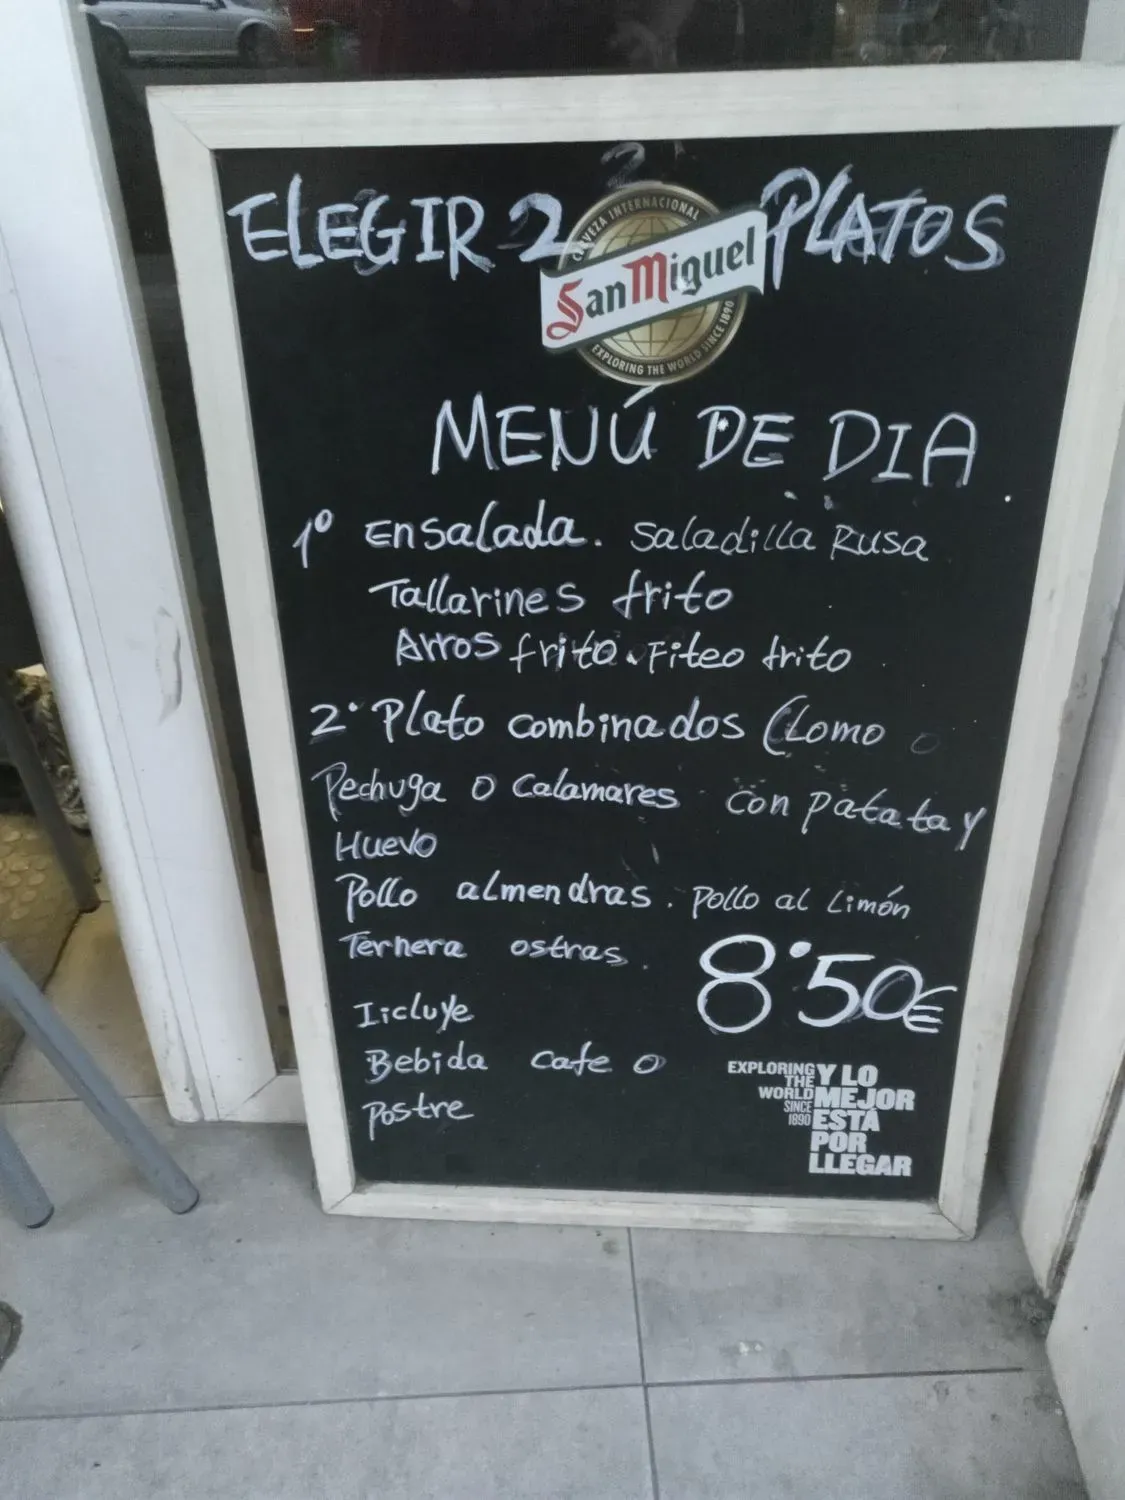 2
ELEGIR 2 PLATOS
CERVEZA INTERNACIONAL
San Miguel
EXPLORING THE WORLD SINCE 1890
MENÚ DE DIA
1º Ensalada. Saladilla Rusa
Tallarines frito
Arros frito. Fiteo frito
2º Plato combinados (Lomo o
Pechuga o Calamares con patata y
Huevo
Pollo almendras. Pollo al Limón
Ternera ostras.
8'50€
Iicluye
Bebida cafe o
Postre
EXPLORING THE WORLD SINCE 1890
Y LO
MEJOR
ESTÁ
POR
LLEGAR